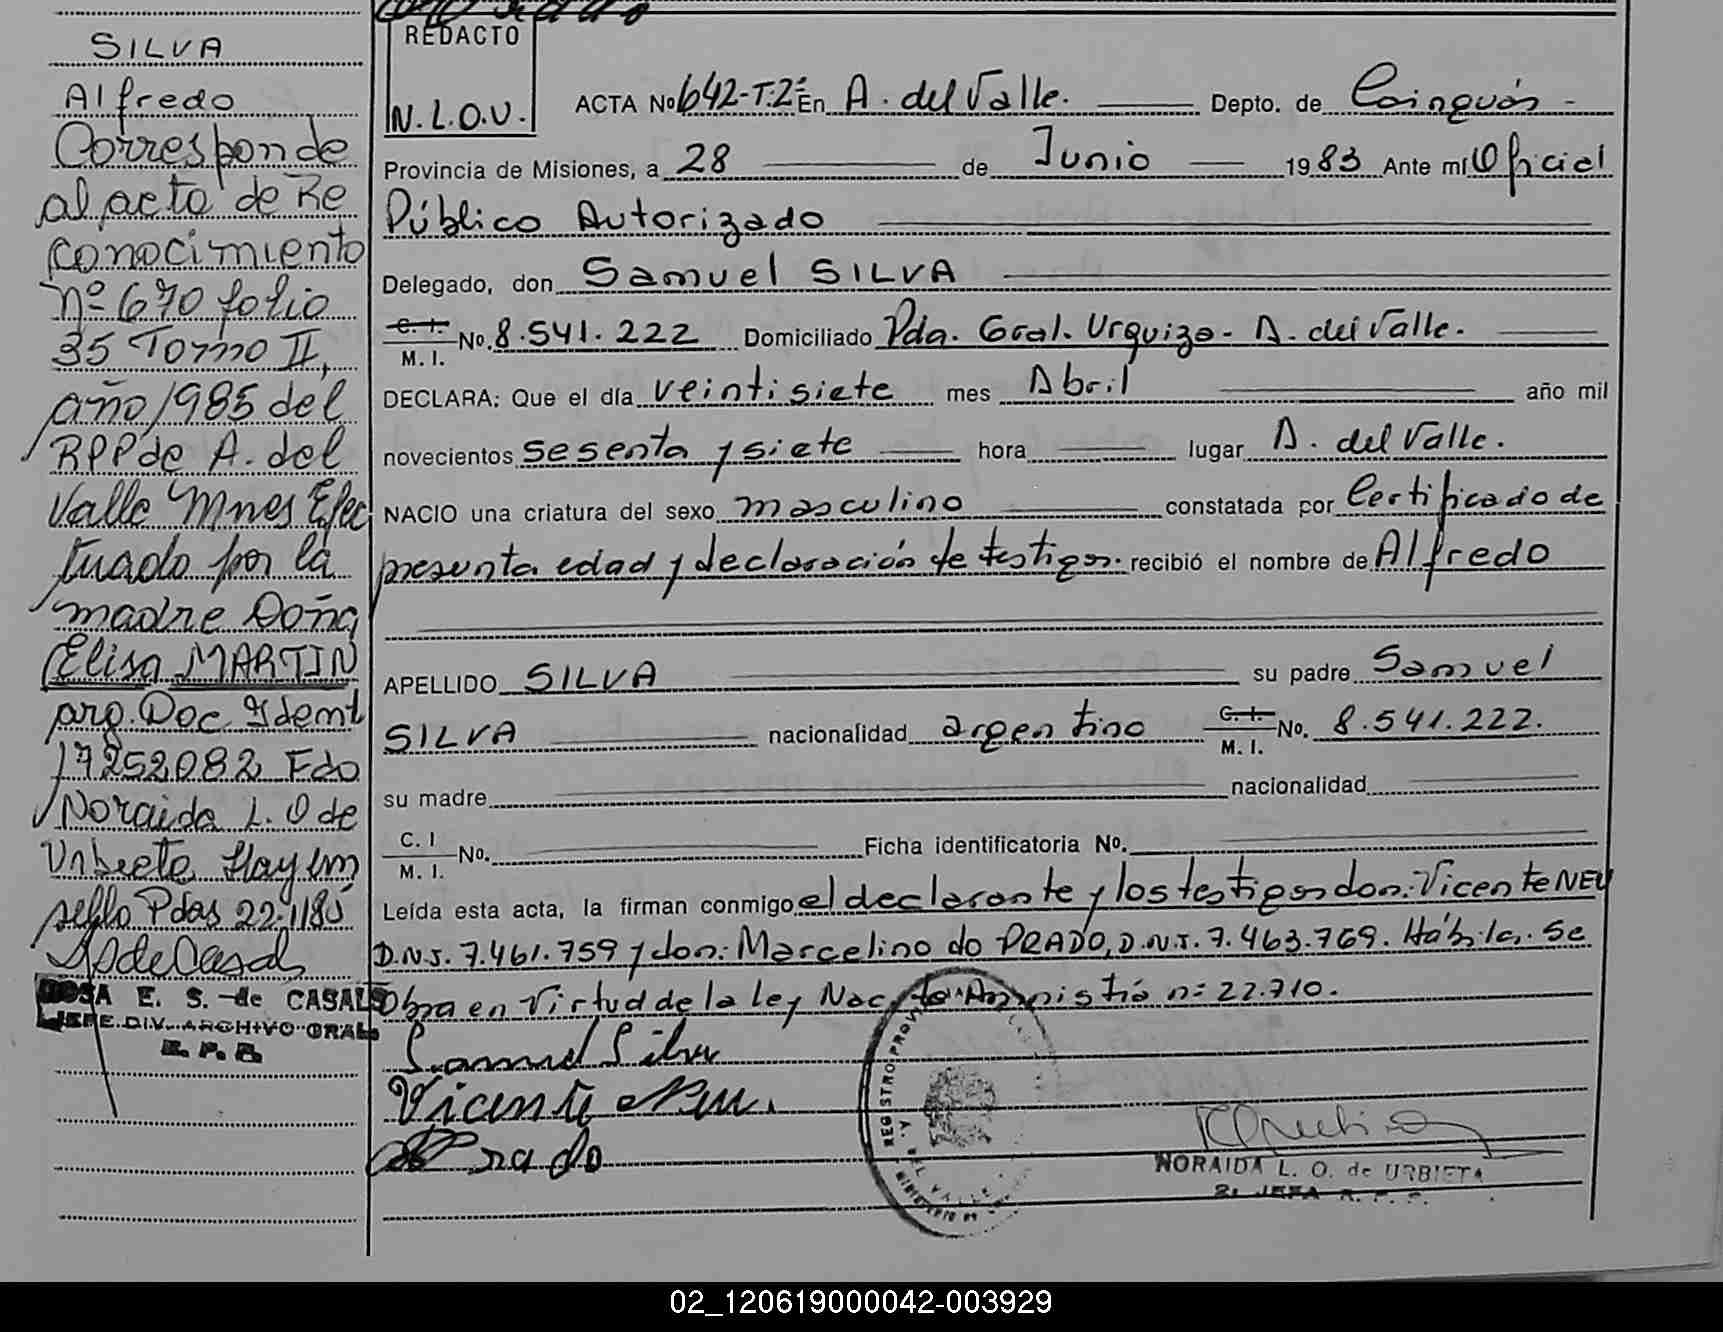 SILVA
Alfredo
Corresponde
al acta de Re
conocimiento
nº 670 folio
35 Tomo II,
año 1985 del
RPP de A. del
Valle Mnes Efec
tuado por la
madre Doña
Elisa MARTIN
arg. Doc Ident
17252082 Fdo
Noraida L. O de
Urbieta Hay un
sello Pdas 22.11.85
E. S. de CASALS
JEFE DIV. ARCHIVO GRAL.
R. P. P.
REDACTO
N.L.O.V.
ACTA No 642-T:2º En A. del Valle. Depto. de Cainguás -
Provincia de Misiones, a 28 de Junio 1983 Ante mí Oficial
Público Autorizado
Delegado, don Samuel SILVA
C. I. M. I. No. 8.541.222 Domiciliado Pda. Gral. Urquiza - A. del Valle.
DECLARA: Que el día veintisiete mes Abril año mil
novecientos sesenta y siete hora lugar A. del Valle.
NACIO una criatura del sexo masculino constatada por Certificado de
presunta edad y declaración de testigos. recibió el nombre de Alfredo
APELLIDO SILVA su padre Samuel
SILVA nacionalidad argentino C. I. M. I. No. 8.541.222.
su madre nacionalidad
C. I M. I. No. Ficha identificatoria No.
Leída esta acta, la firman conmigo el declarante y los testigos don: Vicente NEU
D.N.I. 7.461.759 y don: Marcelino do PRADO, D.N.I. 7.463.769. Hábiles. Se
Obra en Virtud de la ley Nac. de Amnistía nº 22.710.
Samuel Silva
Vicente Neu.
Prado
REGISTRO PROVI
A. DEL VALLE
NORAIDA L. O. de URBIETA
2ª JEFA R. P. P.
02_120619000042-003929